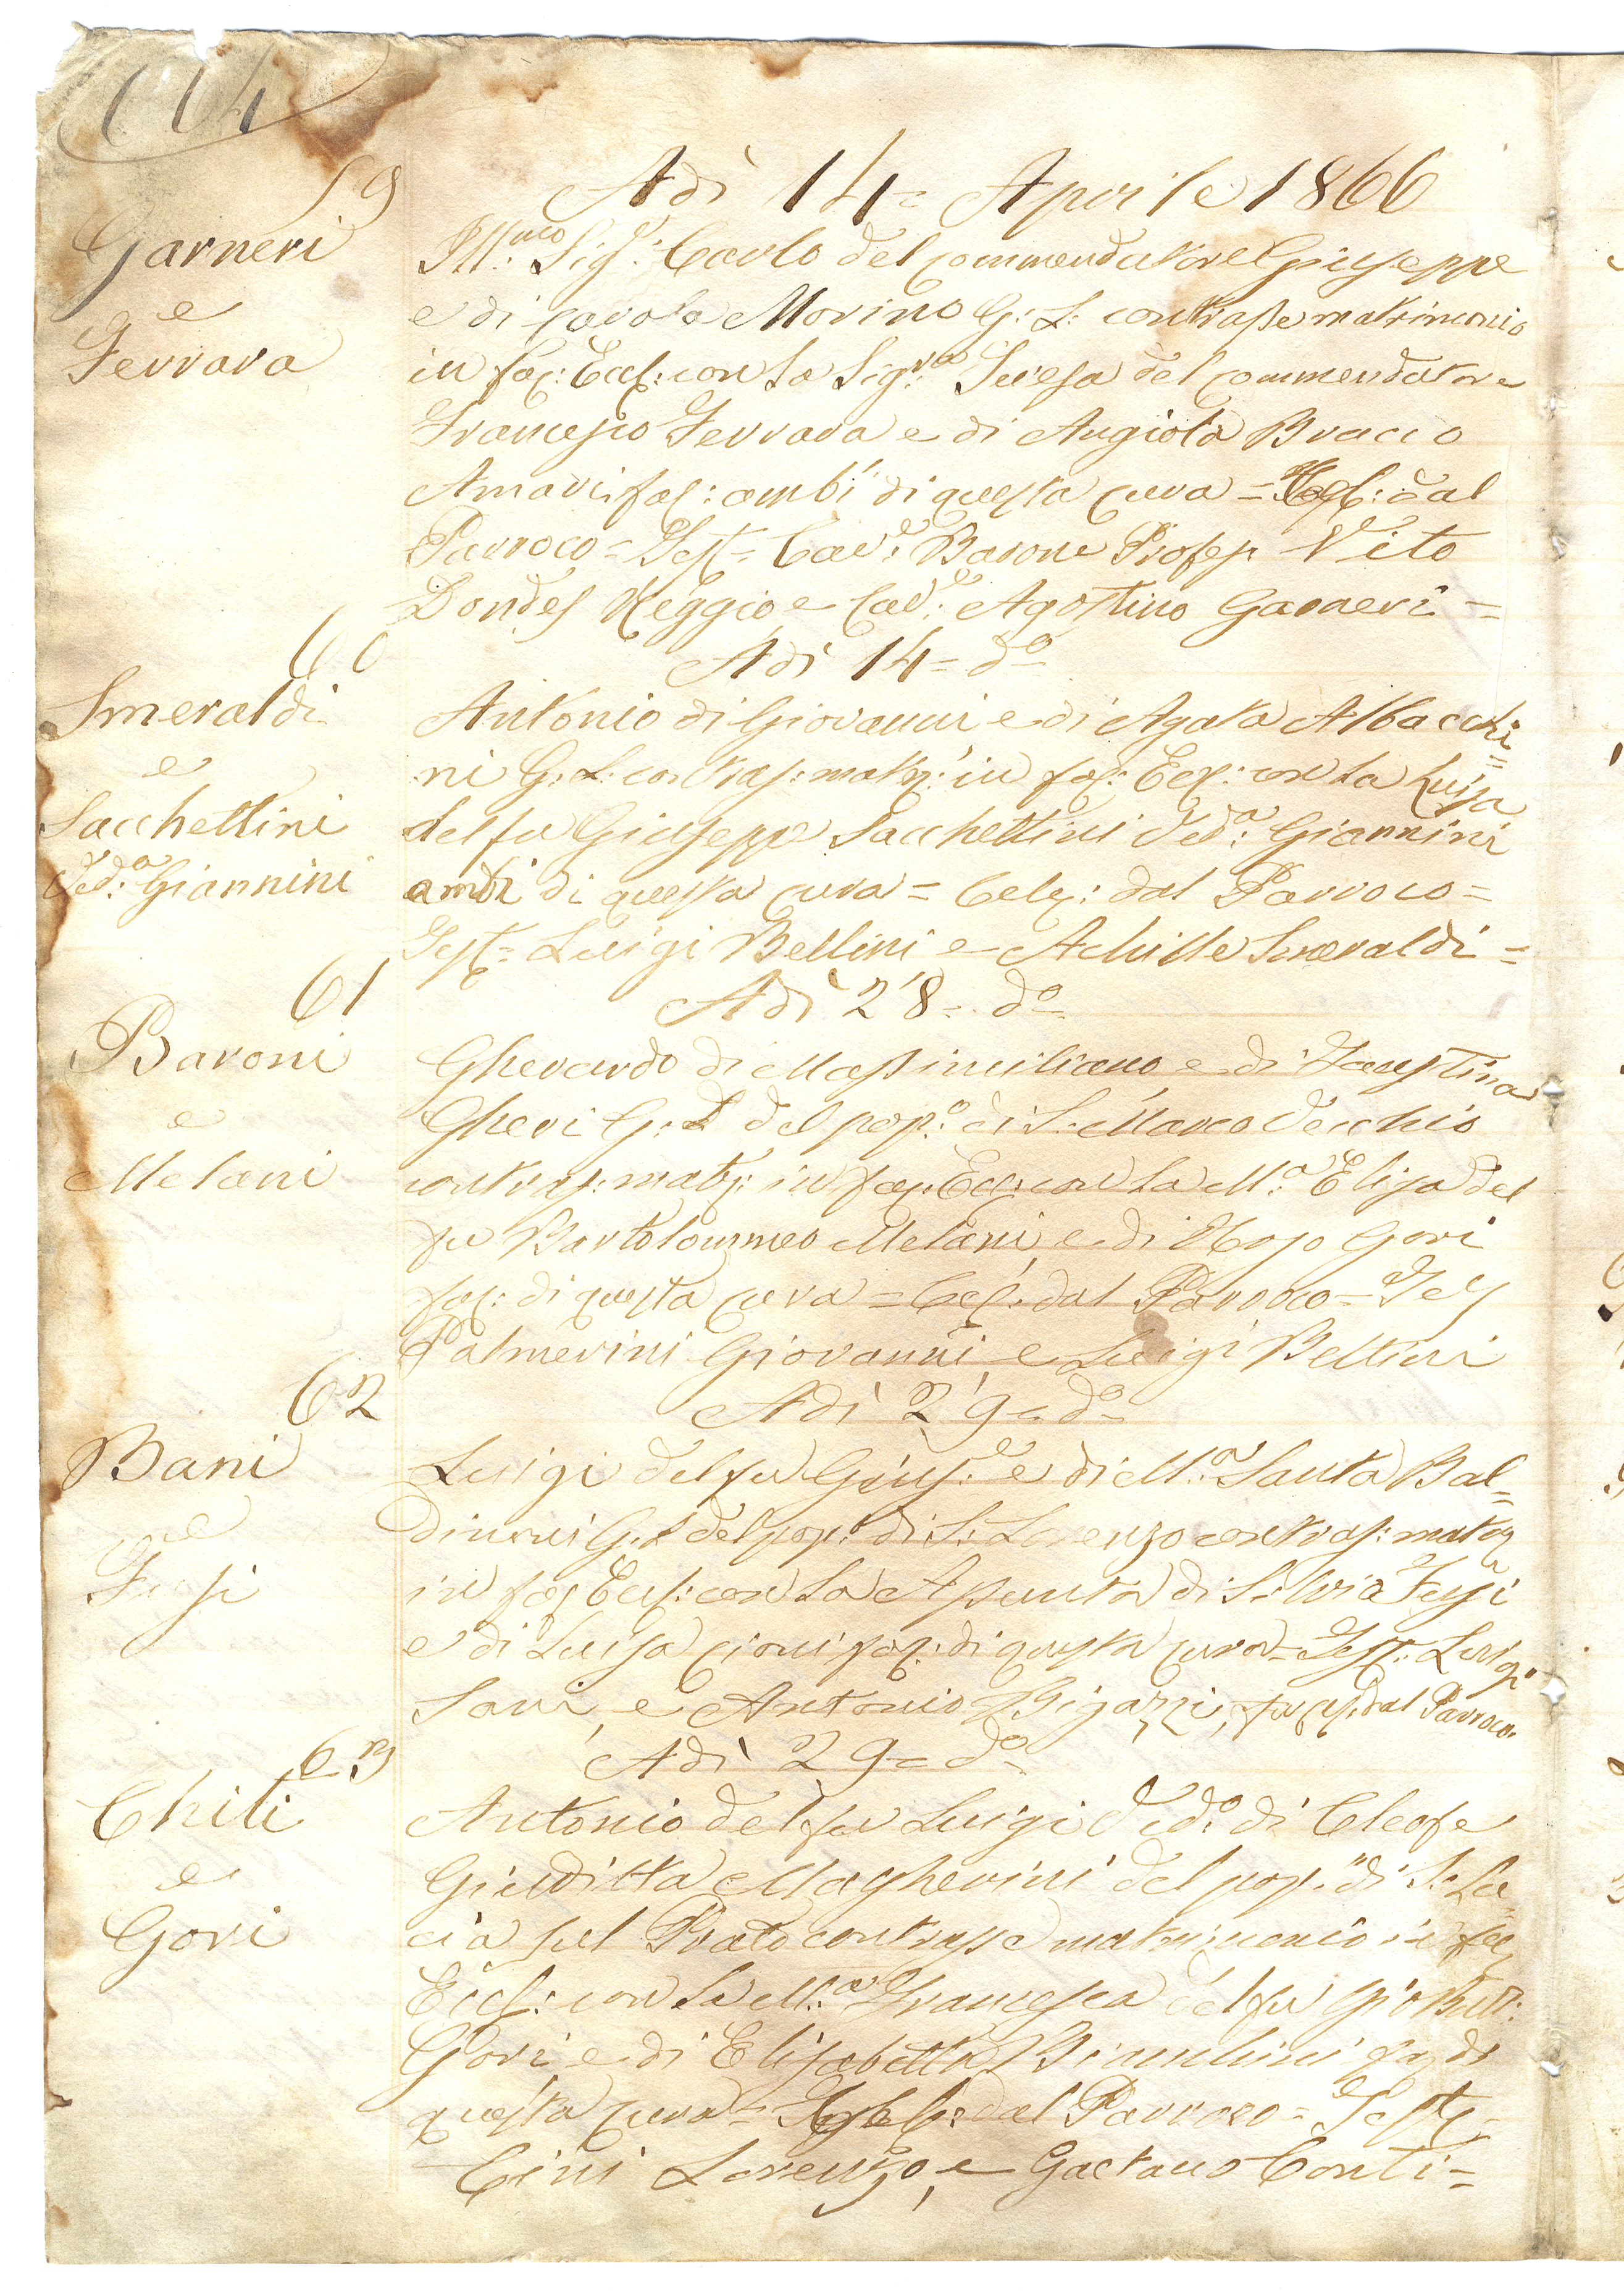 114
59
Adì 14= Aprile 1866
Garneri
e
Ferrara
Ill:mo Sig:r Carlo del commendatore Giuseppe
e di Carola Morino G: L: contrasse matrimonio
in fac: Eccl: con la Sig:ra Teresa del commendatore
Francesco Ferrara e di Angiola Bracco
Amari fac: ambi di questa cura = Cel: dal
Parroco = Test= Cav:e Barone Profes: Vito
Dondes Reggio e Cav:e Agostino Garneri =
60
Adì 14= do=
Smeraldi
e
Sacchettini
Ved:a Giannini
Antonio di Giovanni e di Agata Albacchi=
ni G: L: contras: matr: in fac: Ecc: con la Luisa
del fu Giuseppe Sacchettini Ved:a Giannini
ambi di questa cura = Cele: dal Parroco =
Test= Luigi Bellini e Achille Smeraldi =
61
Adì 28= do=
Baroni
e
Melani
Gherardo di Massimiliano e di Faustina
Gheri G: L del pop:o di S: Marco Vecchio
contras: matr: in fac: Ecc: con la M:a Elisa del
fu Bartolommeo Melani e di Gori
fac: di questa cura = Cel: dal Parroco = Tes
Palmerini Giovanni e Luigi Bellini
62
Adì 29= do=
Bani
e
Fusi
Luigi del fu Gius:e e di M:a Santa Bal=
dinoni G: L del pop: di S: Lorenzo contras: matr
in fac Eccl: con la Assunta di Silvia Fusi
e di Luisa Cioni fac: di questa cura= Test: Luigi
Sani e Antonio Bigazzi, fu cel: dal Parroco.
63
Adì 29= do=
Chiti
e
Gori
Antonio del fu Luigi Ved:o di Cleofe
Giuditta Magherini del pop:o di S: Lu=
cia sul Prato contrasse matrimonio in fac
Eccl: con la M:a Francesca del fu Gio Batt:
Gori e di Elisabetta Bianchini fa: di
questa cura= Cel: dal Parroco = Test=
Cini Lorenzo, e Gaetano Conti=